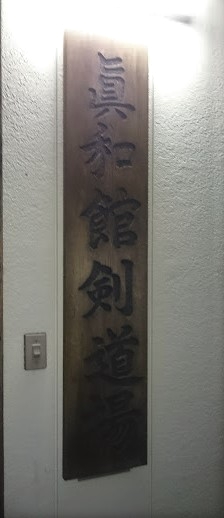 眞和館剣道場